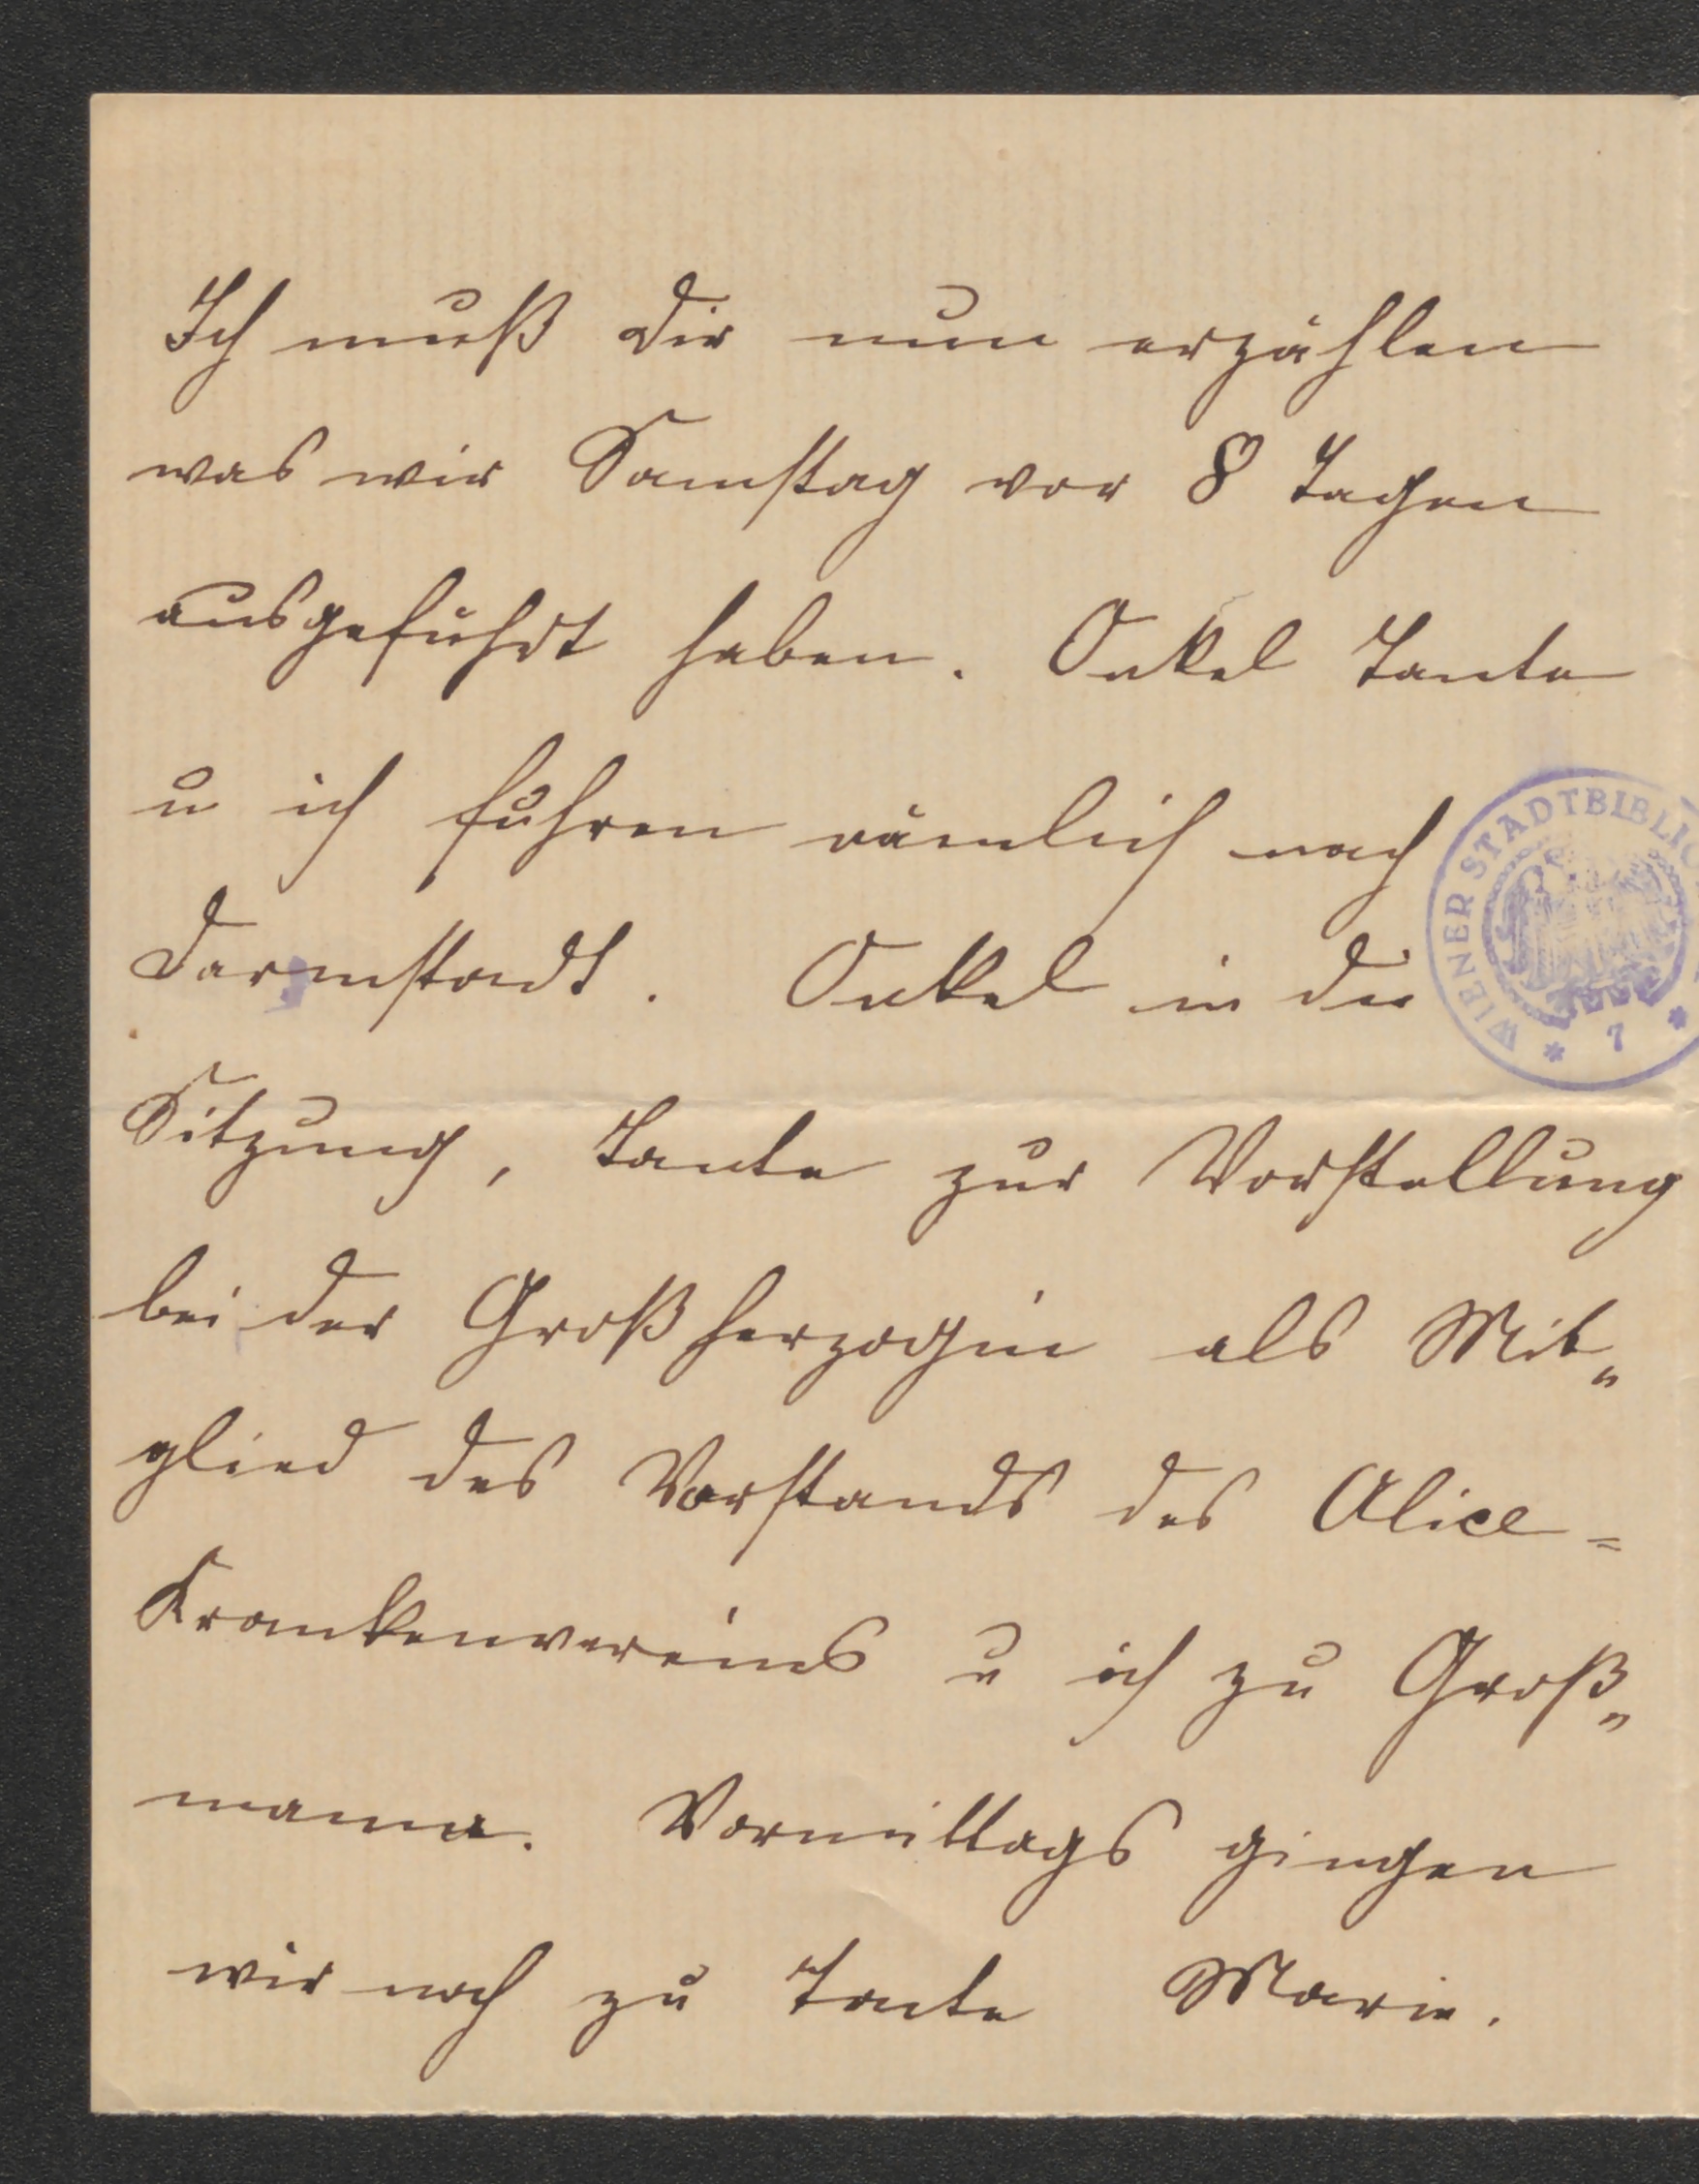 Ich muß Dir nun erzählen
was wir Samstag vor 8 Tagen
ausgeführt haben. Onkel Tante
u ich fuhren nämlich nach
Darmstadt. Onkel in die
Sitzung, Tante zur Vorstellung
bei der Großherzogin als Mit„
glied des Vorstands des Alice=
Krankenvereins u ich zu Groß„
mama. Vormittags gingen
wir noch zu Tante Marie.
WIENER STADTBIBLIO
* 7 *